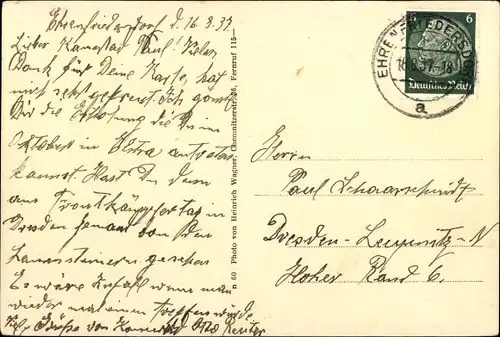 Ehrenfriedersdorf d. 16.9.37
Lieber Kamerad Paul! Vielen
Dank für Deine Karte, hat
mich sehr gefreut. Ich gönne
Dir die Erholung die Du im
Oktober in Elstra antreten
kannst. Hast Du denn
am Frontkämpfertag in
Dresden jemand von den
Kamenzern gesehen
Es wäre Zufall wenn man
wieder mal einen treffen würde
Viele Grüße von Kamerad Otto Reuter
n 60 Photo von Heinrich Wagner, Chemnitzerstr. 36, Fernruf 115
EHRENFRIEDERSDORF
a
6
Deutsches Reich
Herrn
Paul Schaarschmidt
Dresden-Leubnitz-N
Hoher Rand 6.